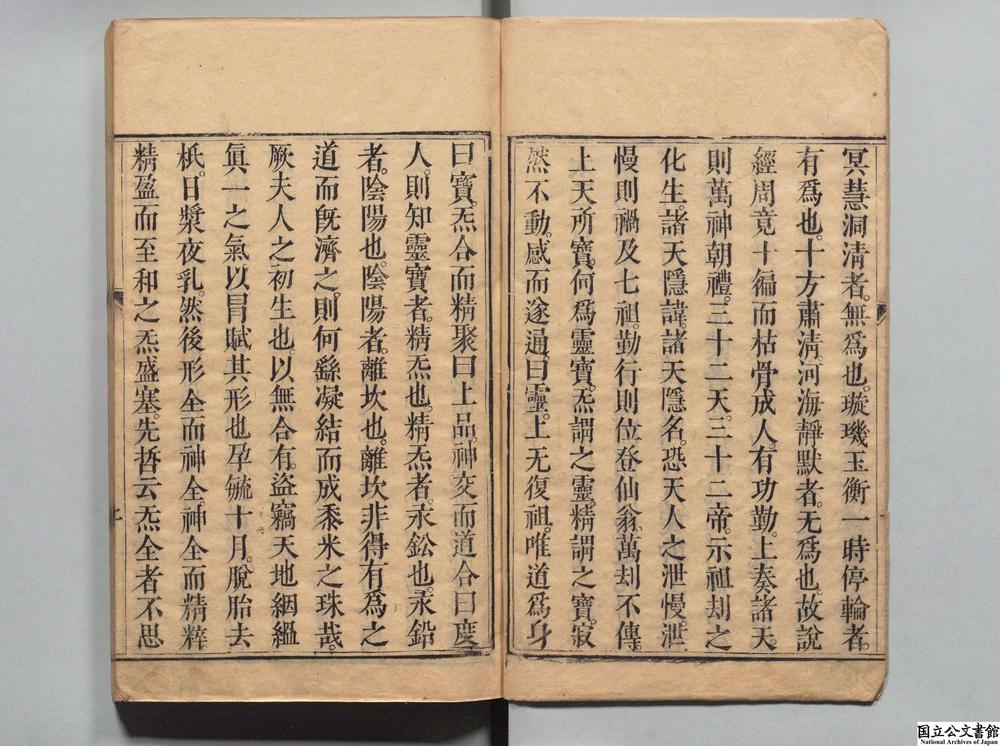 冥慧洞清者。無爲也。璇璣玉衡一時停輪者。
有爲也。十方肅清。河海靜默者。无爲也。故說
經周竟十徧而枯骨成人。有功勤。上奏諸天。
則萬神朝禮。三十二天。三十二帝。示祖刦之
化生。諸天隱諱。諸天隱名。恐天人之泄慢。泄
慢則禍及七祖。勤行則位登仙翁。萬刦不傳。
上天所寶。何爲靈寶。炁謂之靈。精謂之寶。寂
然不動。感而遂通。曰靈。上无復祖。唯道爲身
曰寶。炁合而精聚曰上品。神交而道合曰度
人。則知靈寶者。精炁也。精炁者。汞鈆也。汞鉛
者。陰陽也。陰陽者。離坎也。離坎非得有爲之
道而旣濟之。則何繇凝結而成黍米之珠哉。
厥夫人之初生也。以無合有。盜竊天地絪縕
眞一之氣以冐賦其形也。孕毓十月。脫胎去
柢。日漿夜乳。然後形全而神全。神全而精粹
精盈而至和之炁盛塞。先哲云炁全者不思
上
国立公文書館
National Archives of Japan